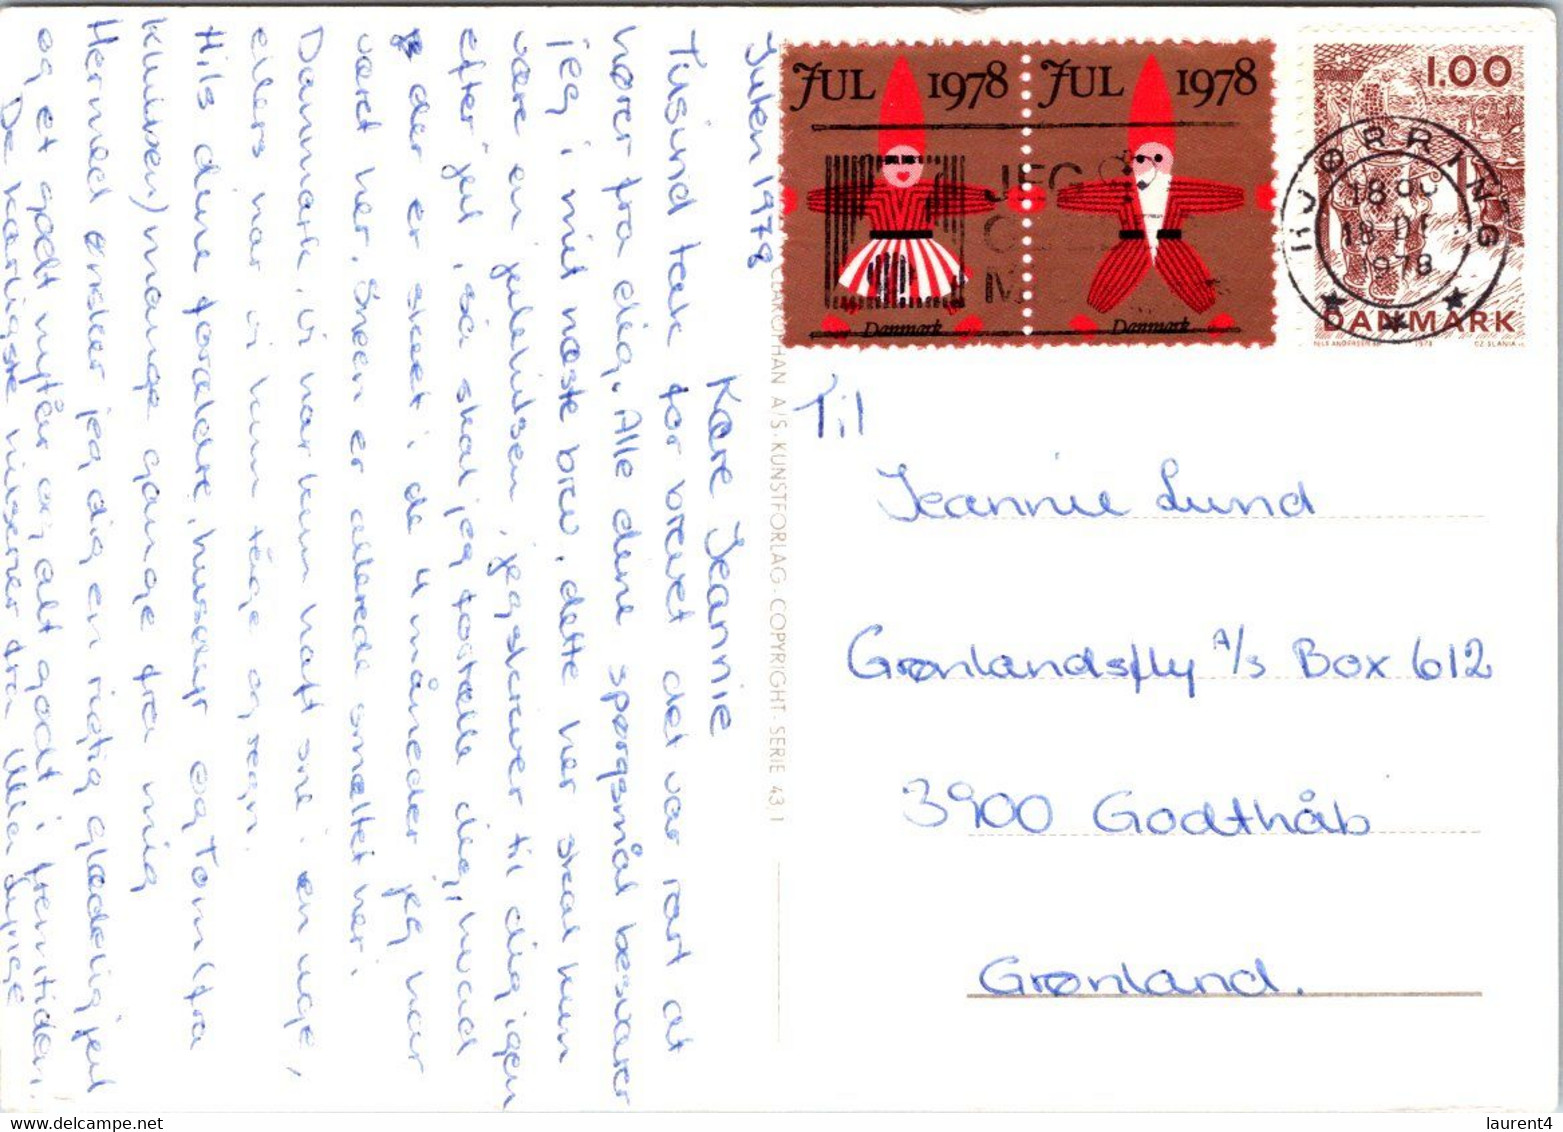 Julen 1978
Kære Jeannie
Tusind tak for brevet det var rart at
hører fra dig. Alle dine spørgsmål besvarer
jeg i mit næste brev, dette her skal kun
være en julehilsen, jeg skriver til dig igen
efter jul, så skal jeg fortælle dig, hvad
der er sket i de 4 måneder jeg har
været her. Sneen er allerede smeltet her i
Danmark, vi har kun haft sne i en uge,
ellers har vi kun tåge og regn.
Hils dine forældre, husdyr og Tom (fra
klubben) mange gange fra mig
Hermed ønsker jeg dig en rigtig glædelig jul
og et godt nytår og alt godt i fremtiden.
De kærligste hilsener fra Ulla
CLAROPHAN A/S · KUNSTFORLAG · COPYRIGHT · SERIE 43,1
JUL 1978
Danmark
JUL 1978
Danmark
JEG
1.00
DANMARK
1978
CZ. SLANIA sc.
HJØRRING
1978
Til
Jeannie Lund
Grønlandsfly A/s Box 612
3900 Godthåb
Grønland.
laurent4